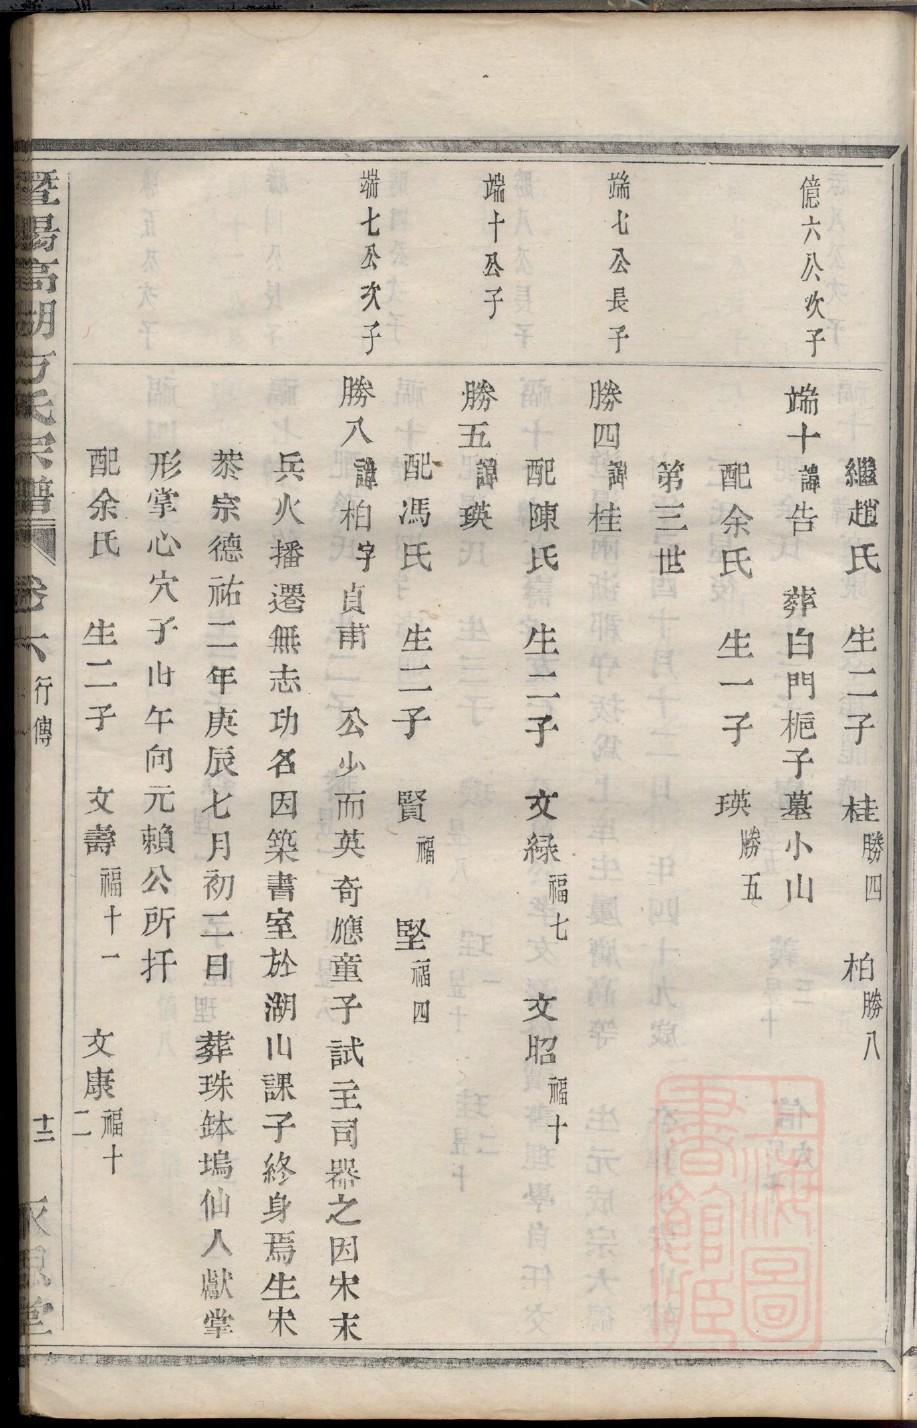 繼趙氏 生二子 桂勝四 柏勝八
億六公次子
端十諱告 葬白門梔子墓小山
配余氏 生一子 瑛勝五
第三世
端七公長子
勝四諱桂
配陳氏 生二子 文綠福七 文昭福十
端十公子
勝五諱瑛
配馮氏 生二子 賢福 堅福四
端七公次子
勝八諱柏字貞甫 公少而英奇應童子試主司器之因宋末
兵火播遷無志功名因築書室於湖山課子終身焉生宋
恭宗德祐二年庚辰七月初二日 葬珠鉢塢仙人獻掌
形掌心穴子山午向元賴公所扦
配余氏 生二子 文壽福十一 文康福十二
暨陽高湖方氏宗譜 卷六 行傳 十二